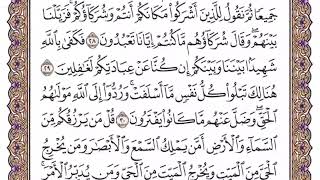 جَمِيعًا ثُمَّ نَقُولُ لِلَّذِينَ أَشْرَكُوا۟ مَكَانَكُمْ أَنتُمْ وَشُرَكَآؤُكُمْ فَزَيَّلْنَا
بَيْنَهُمْ وَقَالَ شُرَكَآؤُهُم مَّا كُنتُمْ إِيَّانَا تَعْبُدُونَ ٢٨ فَكَفَىٰ بِٱللَّهِ
شَهِيدًۢا بَيْنَنَا وَبَيْنَكُمْ إِن كُنَّا عَنْ عِبَادَتِكُمْ لَغَٰفِلِينَ ٢٩
هُنَالِكَ تَبْلُوا۟ كُلُّ نَفْسٍ مَّآ أَسْلَفَتْ وَرُدُّوٓا۟ إِلَى ٱللَّهِ مَوْلَىٰهُمُ
ٱلْحَقِّ وَضَلَّ عَنْهُم مَّا كَانُوا۟ يَفْتَرُونَ ٣٠ قُلْ مَن يَرْزُقُكُم مِّنَ
ٱلسَّمَآءِ وَٱلْأَرْضِ أَمَّن يَمْلِكُ ٱلسَّمْعَ وَٱلْأَبْصَٰرَ وَمَن يُخْرِجُ
ٱلْحَىَّ مِنَ ٱلْمَيِّتِ وَيُخْرِجُ ٱلْمَيِّتَ مِنَ ٱلْحَىِّ وَمَن يُدَبِّرُ ٱلْأَمْرَ